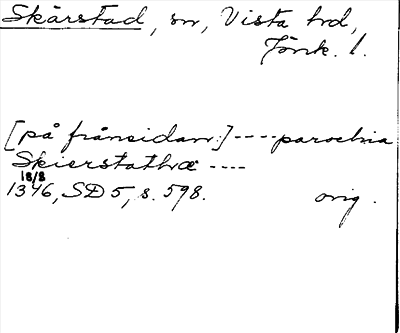 Skärstad, sn, Vista hrd,
Jönk. l.
[på frånsidan:] ---- parochia
Skierstathræ ----
16/8
1346, SD 5, s. 598. orig.